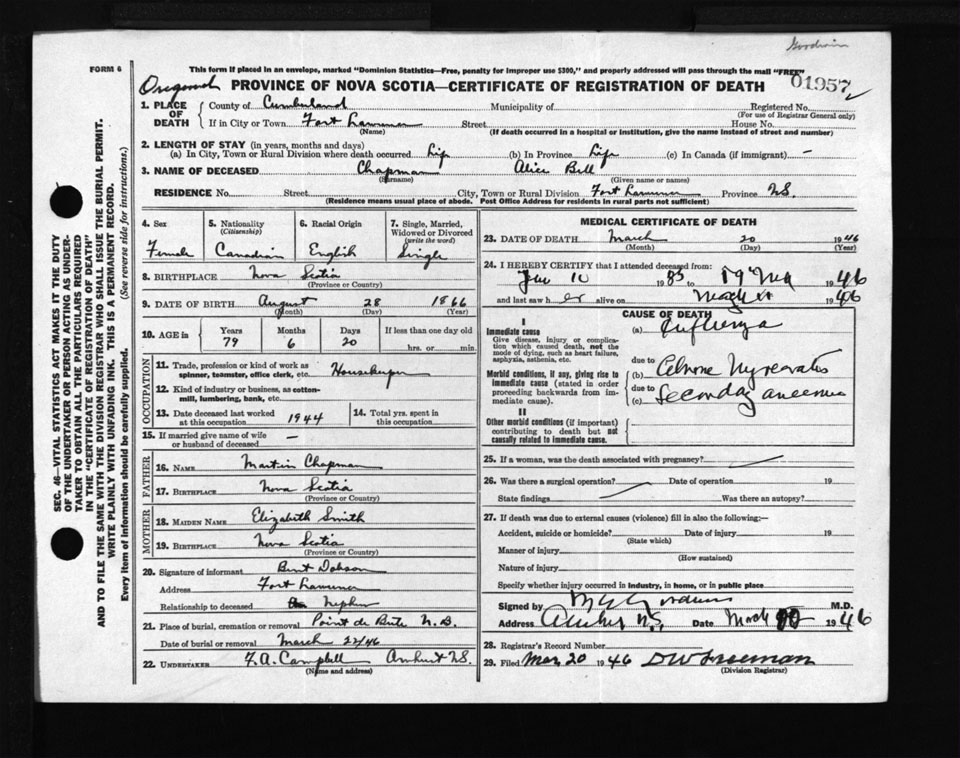 Goodwin
FORM 6
This form if placed in an envelope, marked "Dominion Statistics—Free, penalty for improper use $300," and properly addressed will pass through the mail "FREE"
01957
PROVINCE OF NOVA SCOTIA—CERTIFICATE OF REGISTRATION OF DEATH
1. PLACE OF DEATH
County of Cumberland Municipality of Registered No.
(For use of Registrar General only)
If in City or Town Fort Street House No.
(Name) (If death occurred in a hospital or institution, give the name instead of street and number)
2. LENGTH OF STAY (in years, months and days)
(a) In City, Town or Rural Division where death occurred Life (b) In Province Life (c) In Canada (if immigrant) —
3. NAME OF DECEASED Chapman Alice Bell
(Surname) (Given name or names)
RESIDENCE No. Street City, Town or Rural Division Fort Province NS.
(Residence means usual place of abode. Post Office Address for residents in rural parts not sufficient)
4. Sex 5. Nationality 6. Racial Origin 7. Single, Married,
(Citizenship) Widowed or Divorced
(write the word)
Female Canadian English Single
8. BIRTHPLACE Nova Scotia
(Province or Country)
9. DATE OF BIRTH August 28 1866
(Month) (Day) (Year)
10. AGE in Years Months Days If less than one day old
79 6 20 hrs. or min.
OCCUPATION
11. Trade, profession or kind of work as
spinner, teamster, office clerk, etc. Housekeeper
12. Kind of industry or business, as cotton-
mill, lumbering, bank, etc.
13. Date deceased last worked 14. Total yrs. spent in
at this occupation 1944 this occupation
15. If married give name of wife
or husband of deceased —
FATHER
16. NAME Martin Chapman
17. BIRTHPLACE Nova Scotia
(Province or Country)
MOTHER
18. MAIDEN NAME Elizabeth Smith
19. BIRTHPLACE Nova Scotia
(Province or Country)
20. Signature of informant Burt Dobson
Address Fort
Relationship to deceased Nephew
21. Place of burial, cremation or removal Point de Bute N.B.
Date of burial or removal March 22/46
22. UNDERTAKER F.A. Campbell Amherst NS.
(Name and address)
MEDICAL CERTIFICATE OF DEATH
23. DATE OF DEATH March 20 1946
(Month) (Day) (Year)
24. I HEREBY CERTIFY that I attended deceased from:
19 to 1946
and last saw her alive on 1946
CAUSE OF DEATH
I
Immediate cause (a) Influenza
Give disease, injury or complica-
tion which caused death, not the
mode of dying, such as heart failure,
asphyxia, asthenia, etc.
due to
Morbid conditions, if any, giving rise to (b)
immediate cause (stated in order due to
proceeding backwards from im- (c)
mediate cause).
II
Other morbid conditions (if important)
contributing to death but not
causally related to immediate cause.
25. If a woman, was the death associated with pregnancy?
26. Was there a surgical operation? Date of operation 19
State findings Was there an autopsy?
27. If death was due to external causes (violence) fill in also the following:—
Accident, suicide or homicide? Date of injury 19
(State which)
Manner of injury
(How sustained)
Nature of injury
Specify whether injury occurred in industry, in home, or in public place
Signed by M.D.
Address N.S. Date March 1946
28. Registrar's Record Number
29. Filed Mar 20 1946 DW Freeman
(Division Registrar)
SEC. 46—VITAL STATISTICS ACT MAKES IT THE DUTY
OF THE UNDERTAKER OR PERSON ACTING AS UNDER-
TAKER TO OBTAIN ALL THE PARTICULARS REQUIRED
IN THE "CERTIFICATE OF REGISTRATION OF DEATH"
AND TO FILE THE SAME WITH THE DIVISION REGISTRAR WHO SHALL ISSUE THE BURIAL PERMIT.
WRITE PLAINLY WITH UNFADING INK. THIS IS A PERMANENT RECORD.
Every item of information should be carefully supplied. (See reverse side for instructions.)